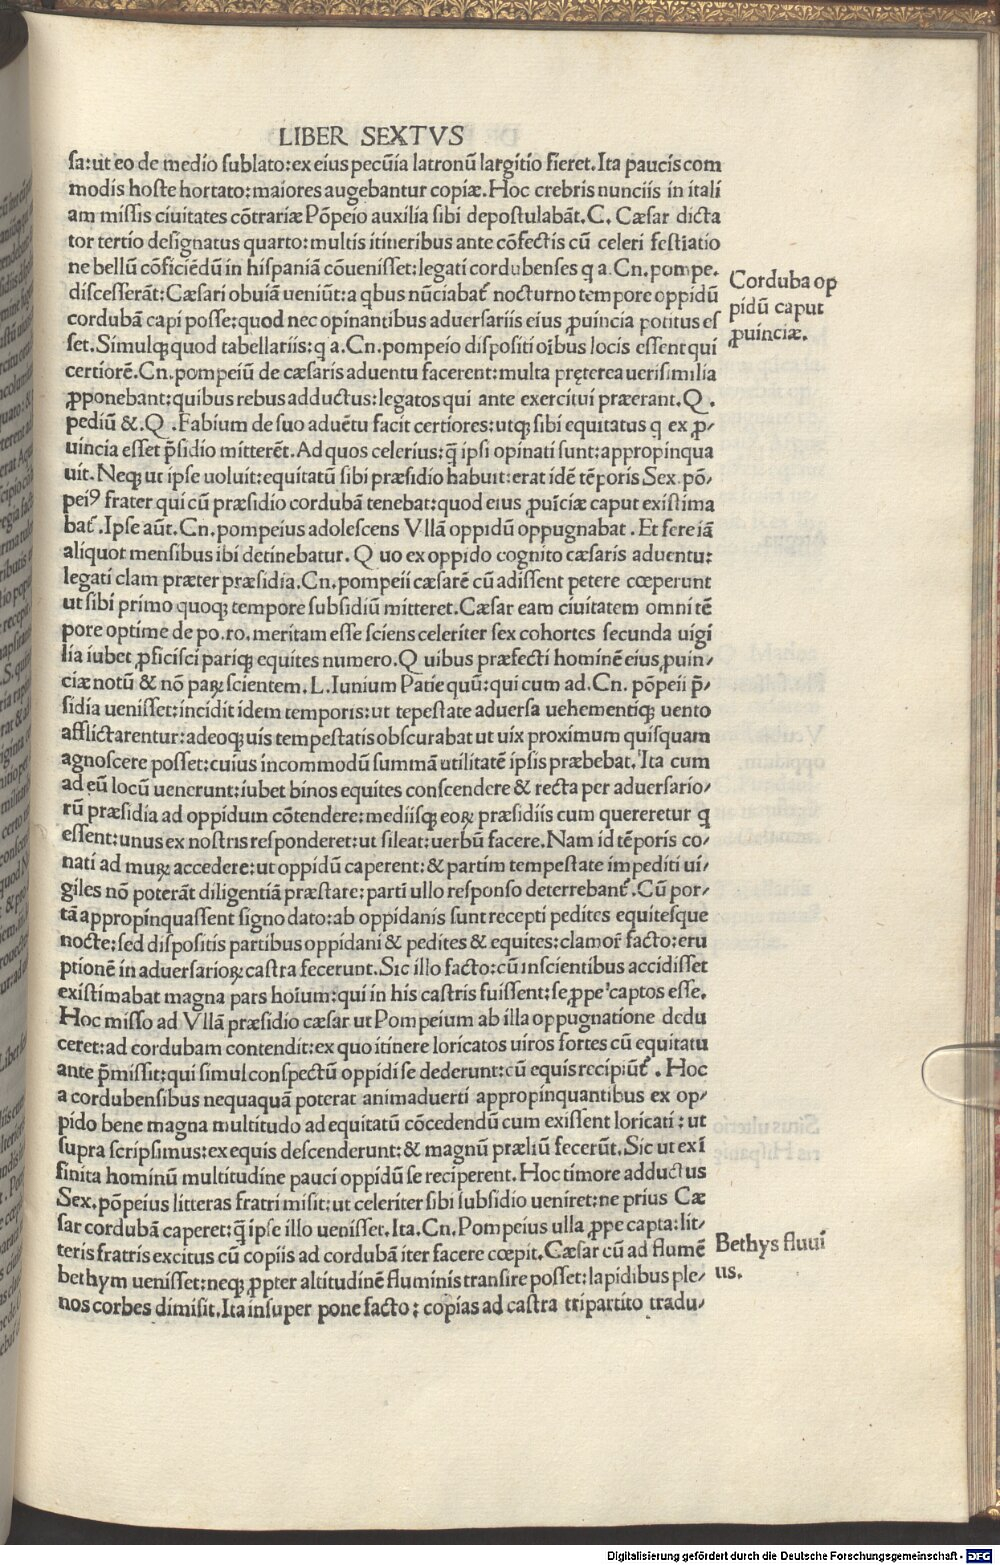 LIBER SEXTVS
sa:ut eo de medio sublato:ex eius pecūia latronū largitio fieret.Ita paucis com
modis hoste hortato:maiores augebantur copiæ.Hoc crebris nunciis in itali
am missis ciuitates cōtrariæ Pōpeio auxilia sibi depostulabāt.C.Cæsar dicta
tor tertio designatus quarto:multis itineribus ante cōfectis cū celeri festiatio
ne bellū cōficiēdū in hispaniā cōuenisset:legati cordubenses q a.Cn.pompe.
discesserāt:Cæsari obuiā ueniūt:a qbus nūciabat᷑ nocturno tempore oppidū
cordubā capi posse:quod nec opinantibus aduersariis eius ꝓuincia potitus es
set.Simulqꝫ quod tabellariis:q a.Cn.pompeio dispositi oībus locis essent qui
certiorē.Cn.pompeiū de cæsaris aduentu facerent:multa pręterea uerisimilia
ꝓponebant:quibus rebus adductus:legatos qui ante exercitui præerant.Q.
pediū &.Q.Fabium de suo aduētu facit certiores:utqꝫ sibi equitatus q ex ꝓ/
uincia esset p̄sidio mitterēt.Ad quos celerius:q̄ ipsi opinati sunt:appropinqua
uit.Neqꝫ ut ipse uoluit:equitatū sibi præsidio habuit:erat idē tēporis Sex.pō/
peiꝰ frater qui cū præsidio cordubā tenebat:quod eius ꝓuīciæ caput existima
bat᷑.Ipse aūt.Cn.pompeius adolescens Vllā oppidū oppugnabat.Et fere iā
aliquot mensibus ibi detinebatur.Quo ex oppido cognito cæsaris aduentu:
legati clam præter præsidia.Cn.pompeii cæsarē cū adissent petere cœperunt
ut sibi primo quoqꝫ tempore subsidiū mitteret.Cæsar eam ciuitatem omni tē
pore optime de po.ro.meritam esse sciens celeriter sex cohortes secunda uigi
lia iubet ꝓficisci pariqꝫ equites numero.Quibus præfecti hominē eius ꝓuin/
ciæ notū & nō paꝝ scientem.L.Iunium Patiequū:qui cum ad.Cn.pōpeii p̄/
sidia uenisset:incidit idem temporis:ut tēpestate aduersa uehementiqꝫ uento
afflictarentur:adeoqꝫ uis tempestatis obscurabat ut uix proximum quisquam
agnoscere posset:cuius incommodū summā utilitatē ipsis præbebat.Ita cum
ad eū locū uenerunt:iubet binos equites conscendere & recta per aduersario/
rū præsidia ad oppidum cōtendere:mediisqꝫ eoꝝ præsidiis cum quereretur q
essent:unus ex nostris responderet:ut sileat:uerbū facere.Nam id tēporis co/
nati ad muꝝ accedere:ut oppidū caperent:& partim tempestate impediti ui/
giles nō poterāt diligentiā præstare:partī ullo responso deterrebant᷑.Cū por/
tā appropinquassent signo dato:ab oppidanis sunt recepti pedites equitesque
nocte:sed dispositis partibus oppidani & pedites & equites:clamor᷑ facto:eru
ptionē in aduersarioꝝ castra fecerunt.Sic illo facto:cū inscientibus accidisset
existimabat magna pars hoīum:qui in his castris fuissent:se ꝓpe captos esse.
Hoc misso ad Vllā præsidio cæsar ut Pompeium ab illa oppugnatione dedu
ceret:ad cordubam contendit:ex quo itinere loricatos uiros fortes cū equitatu
ante p̄missit:qui simul conspectū oppidi se dederunt:cū equis recipiūt᷑.Hoc
a cordubensibus nequaquā poterat animaduerti appropinquantibus ex op/
pido bene magna multitudo ad equitatū cōcedendū cum exissent loricati:ut
supra scripsimus:ex equis descenderunt:& magnū præliū fecerūt.Sic ut exī
finita hominū multitudine pauci oppidū se reciperent.Hoc timore adductus
Sex.pōpeius litteras fratri misit:ut celeriter sibi subsidio ueniret:ne prius Cæ
sar cordubā caperet:q̄ ipse illo uenisset.Ita.Cn.Pompeius ulla ꝓpe capta:lit/
teris fratris excitus cū copiis ad cordubā iter facere cœpit.Cæsar cū ad flumē
bethym uenisset:neqꝫ ꝓpter altitudinē fluminis transire posset:lapidibus ple/
nos corbes dimisit.Ita insuper pone facto:copias ad castra tripartito tradu/
Corduba op
pidū caput
ꝓuinciæ.
Bethys fluui
us.
Digitalisierung gefördert durch die Deutsche Forschungsgemeinschaft - DFG